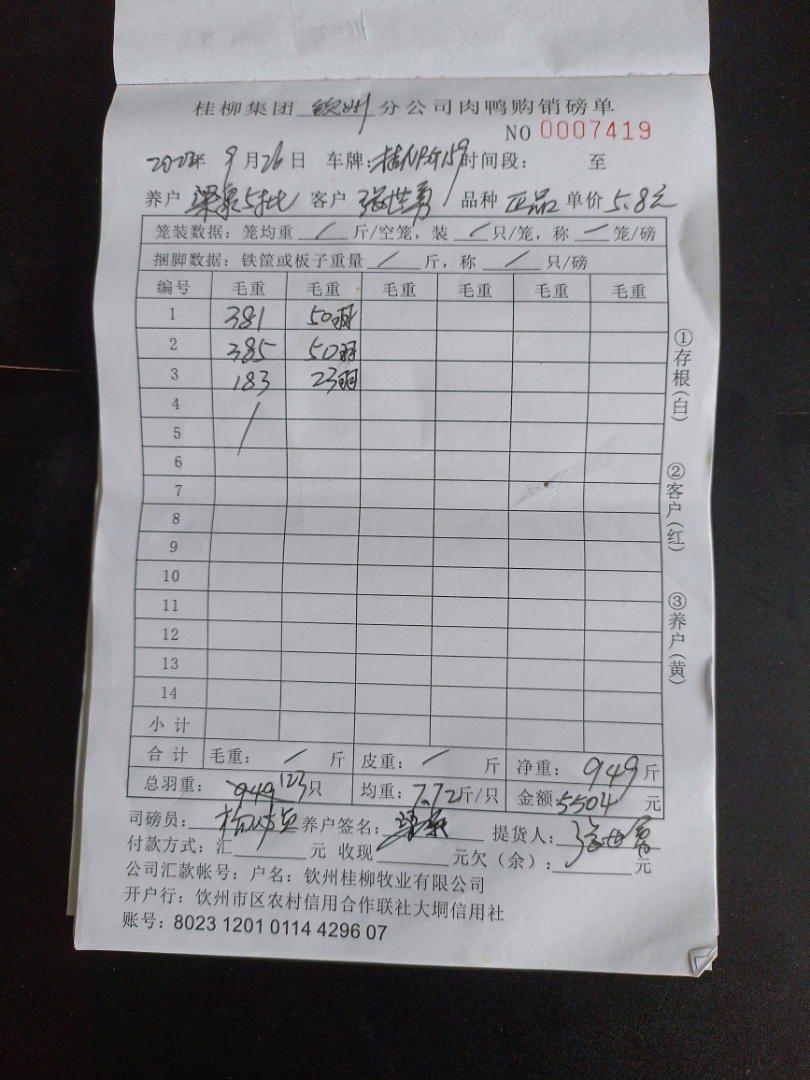 桂柳集团 钦州 分公司肉鸭购销磅单
NO 0007419
9月26日 车牌: 时间段: 至
养户 梁泉5批 客户 张世勇 品种 正品 单价 5.8元
笼装数据: 笼均重 / 斤/空笼, 装 / 只/笼, 称 / 笼/磅
捆脚数据: 铁筐或板子重量 / 斤, 称 / 只/磅
编号 毛重 毛重 毛重 毛重 毛重 毛重
1 381 50羽
2 385 50羽
3 183 23羽
4 /
5
6
7
8
9
10
11
12
13
14
小计
合计 毛重: / 斤 皮重: / 斤 净重: 949斤
总羽重: 949 123只 均重: 7.72斤/只 金额: 5504 元
司磅员: 养户签名: 梁泉 提货人: 张世勇
付款方式: 汇 元 收现 元欠(余): 元
公司汇款帐号: 户名: 钦州桂柳牧业有限公司
开户行: 钦州市区农村信用合作联社大垌信用社
账号: 8023 1201 0114 4296 07
①存根(白)
②客户(红)
③养户(黄)